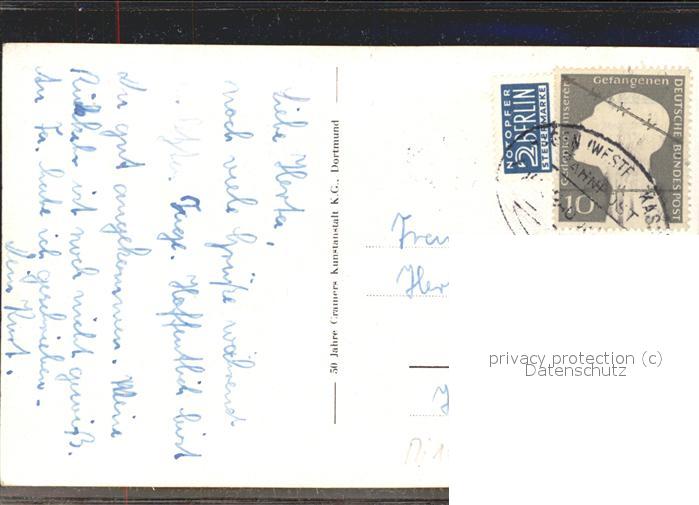 Liebe Herta,
noch viele Grüße während
Tage. Hoffentlich bist
Du gut angekommen. Meine
Rückkehr ist noch nicht gewiß.
An Dr. habe ich geschrieben.
Dein Kurt.
50 Jahre Cramers Kunstanstalt K.G., Dortmund
NOTOPFER
2 BERLIN
STEUERMARKE
Gedenket unserer
Gefangenen
DEUTSCHE BUNDESPOST
10
(WESTF
KAS
BAHNPOST
Frau
Her
privacy protection (c)
Datenschutz